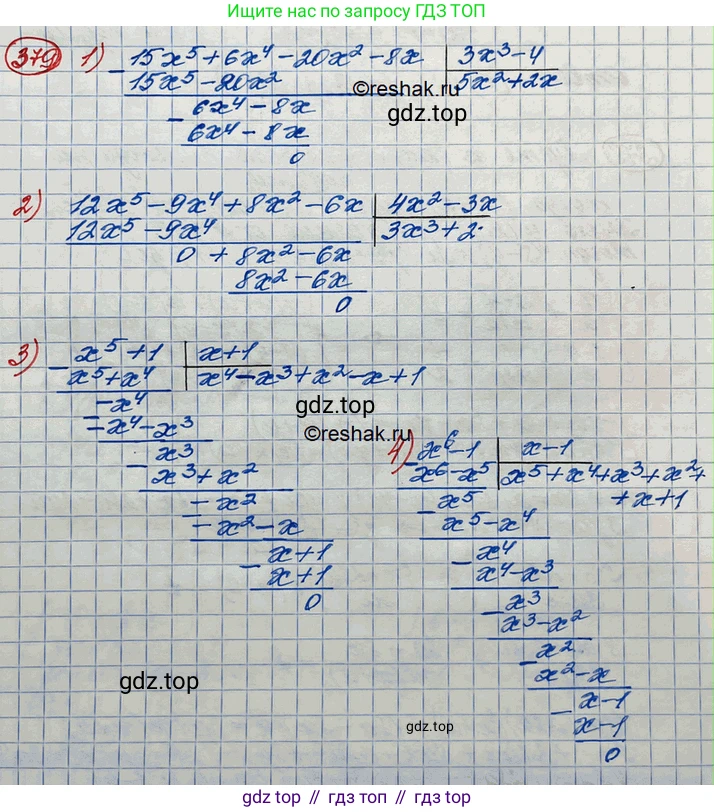 Ищите нас по запросу ГДЗ ТОП
379 1) 15x⁵ + 6x⁴ - 20x² - 8x | 3x³ - 4
- 15x⁵ - 20x² | 5x² + 2x
©reshak.ru
6x⁴ - 8x
gdz.top
- 6x⁴ - 8x
0
2) 12x⁵ - 9x⁴ + 8x² - 6x | 4x² - 3x
12x⁵ - 9x⁴ | 3x³ + 2.
0 + 8x² - 6x
8x² - 6x
0
3) - x⁵ + 1 | x + 1
x⁵ + x⁴ | x⁴ - x³ + x² - x + 1
- x⁴
gdz.top
- x⁴ - x³
©reshak.ru
x³
- x³ + x²
- x²
- x² - x
x + 1
- x + 1
0
4) - x⁶ - 1 | x - 1
x⁶ - x⁵ | x⁵ + x⁴ + x³ + x² +
+ x + 1
- x⁵
x⁵ - x⁴
- x⁴
x⁴ - x³
- x³
x³ - x²
- x²
x² - x
- x - 1
x - 1
0
gdz.top
gdz.top
gdz.top // гдз.топ // gdz.top